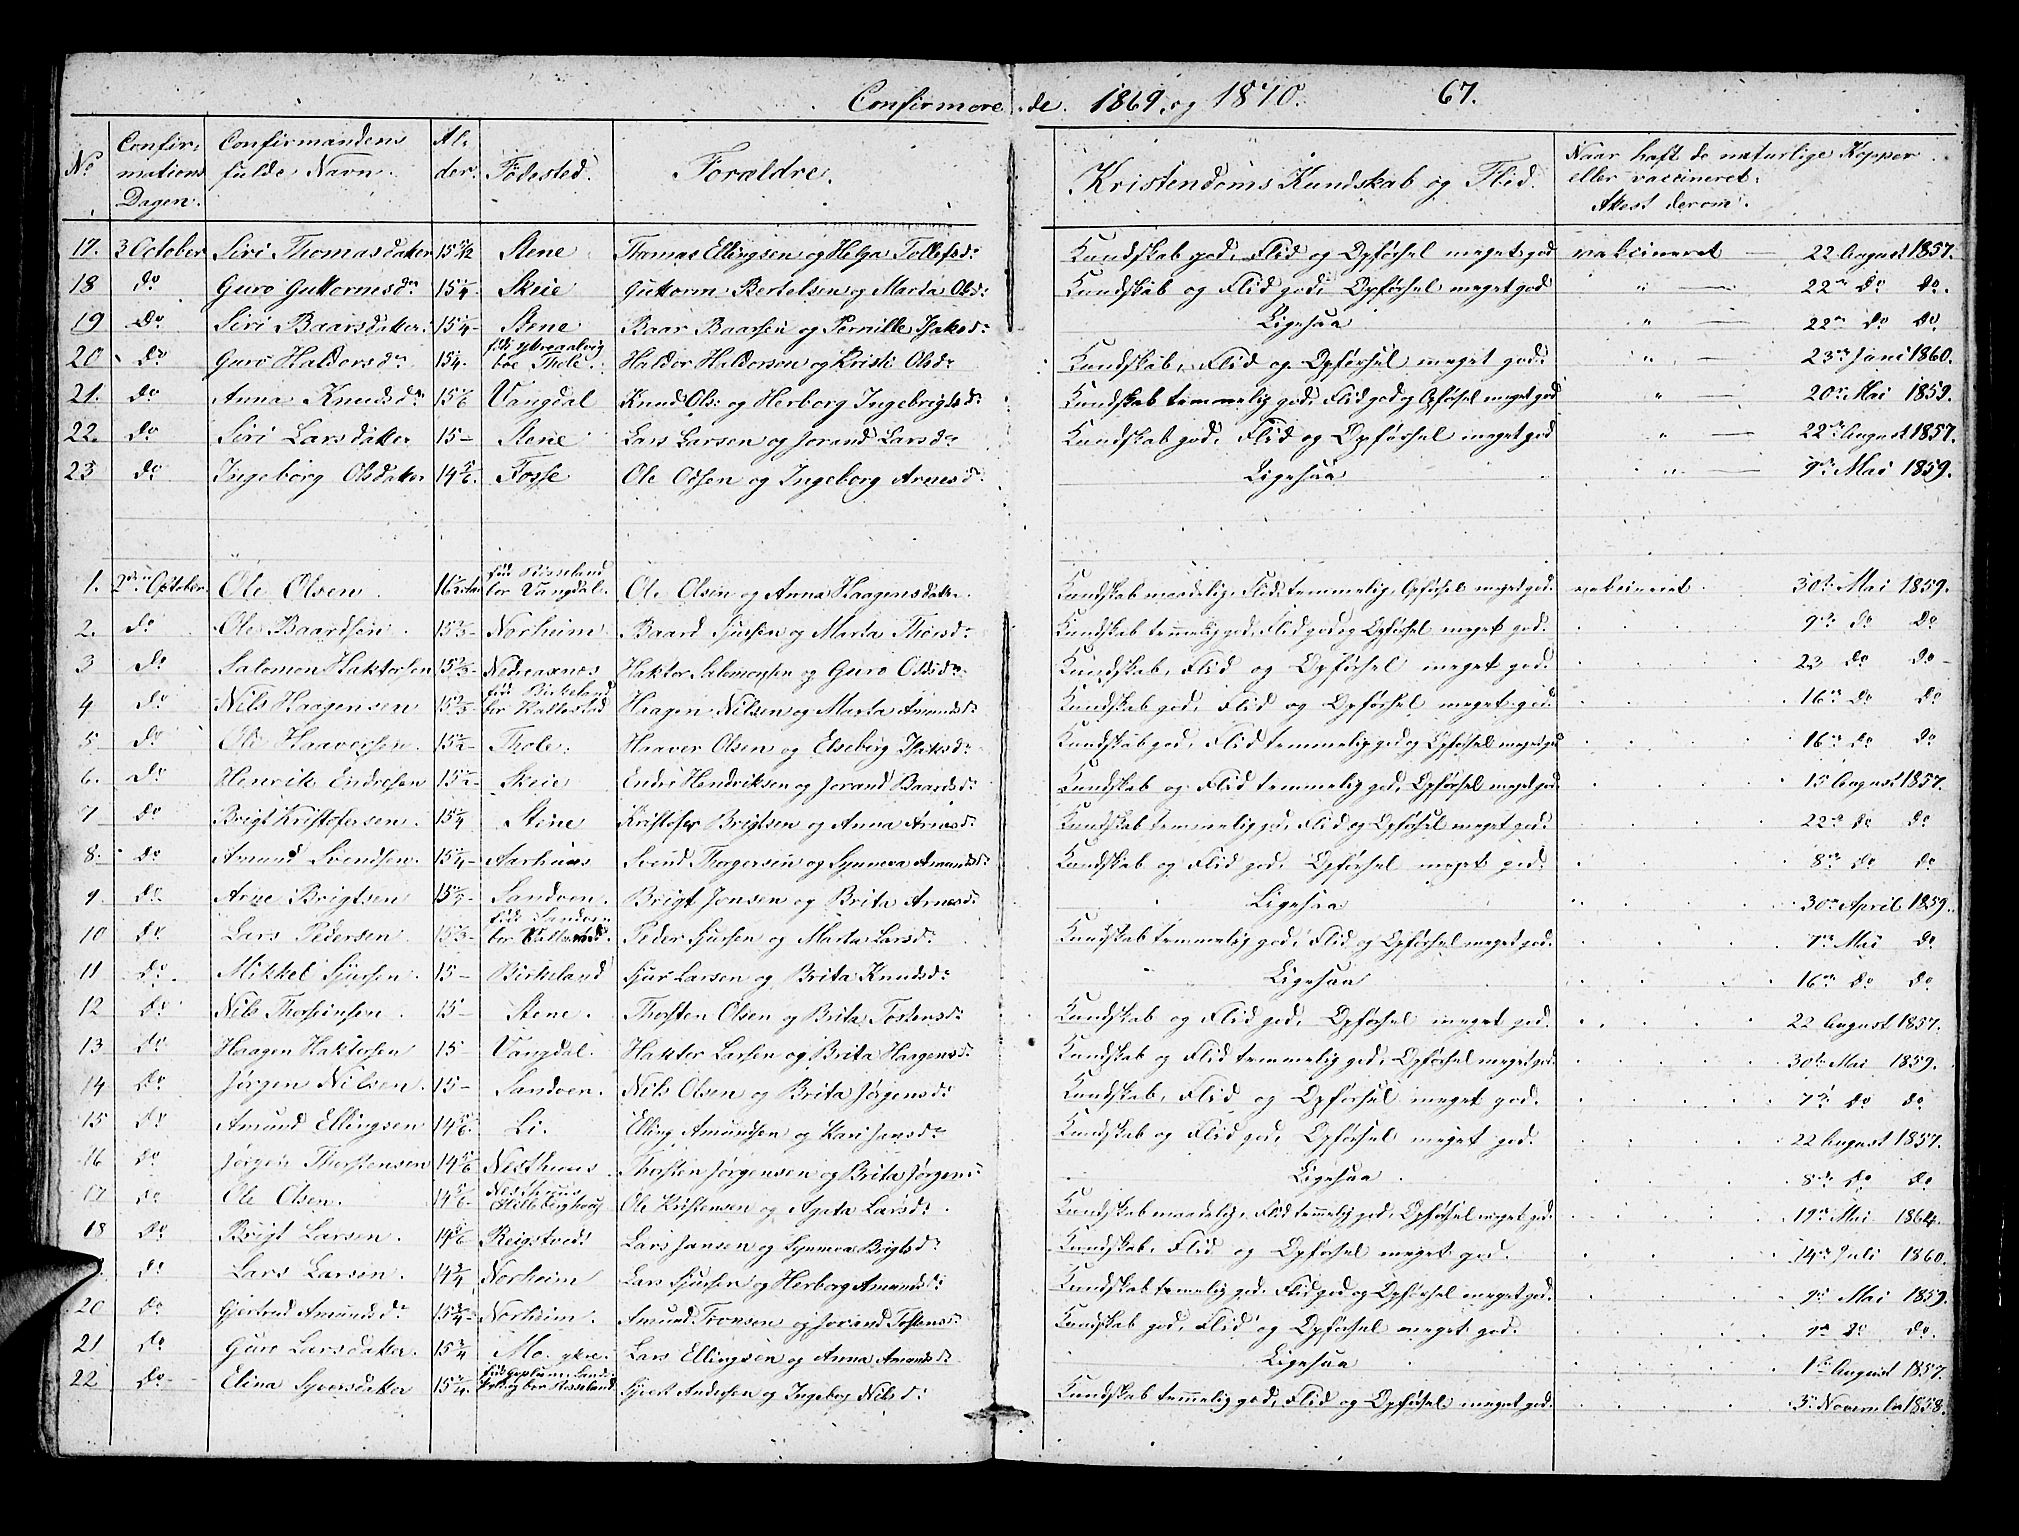 Confirmerede. 1869. og 1870. 67.
No Confirmations Dagen. Confirmandens fulde Navn. Alder. Fødested. Forældre. Kristendoms Kundskab og Flid. Naar haft de naturlige Kopper eller vaccineret. Attest derom.
17. 3 October Siri Thomasdatter 15 1/2 Stene Thomas Ellingsen og Helga Tollefsdr Kundskab god, Flid og Opførsel meget god vakcineret — 22 August 1857.
18 do Guro Guttormsdr 15 1/4 Skeie Guttorm Bertelsen og Marta Olsdr Kundskab og Flid god, Opførsel meget god " — 22de do do.
19 Do Siri Baarsdatter 15 1/4 Stene Baar Baarsen og Pernille Isaksdr Ligesaa " — 22de do do
20 do Guro Haldorsdr 15 1/4 Thole. Haldor Haldorsen og Kristi Olsdr Kundskab, Flid og Opførsel meget god. " — 23de Juni 1860.
21. do Anna Knudsdr 15 1/6 Vangdal Knud Ols: og Herborg Ingebrigtsdr Kundskab temmelig god, Flid god og Opførsel meget god " — 20de Mai 1859.
22. do Siri Larsdatter 15 — Stene Lars Larsen og Jorand Larsdr Kundskab god, Flid og Opførsel meget god " — 22de August 1857.
23 do Ingeborg Olsdatter 14 5/6 Fosse Ole Olsen og Ingeborg Arnesdr Ligesaa " — 9de Mai 1859.
1. 2den October Ole Olsen 16 bor Vangdal. Ole Olsen og Anna Haagensdatter. Kundskab maadelig, Flid temmelig, Opførsel meget god. vakcineret. 30te Mai 1859.
2. do Ole Baardsen 15 2/3 Norheim Baard Sjursen og Marta Thoresdr Kundskab temmelig god, Flid god og Opførsel meget god. 9de do Do
3 do Salomon Haktorsen 15 2/3 Nedreaxnes Haktor Salomonsen og Guro Olsdr Kundskab, Flid og Opførsel meget god. 23 do Do
4 do Nils Haagensen 15 2/3 fød Birkeland bor Kaltestad Haagen Nilsen og Marta Amundsdr Kundskab god, Flid og Opførsel meget god. 16de do Do
5 do Ole Haaversen 15 1/2 Thole. Haaver Olsen og Elseberg Isaksdr Kundskab god, Flid temmelig god og Opførsel meget god 16de do do
6. Do Henrik Endresen 15 1/2 Skeie Endre Hendriksen og Jorand Baardsdr Kundskab og Flid temmelig god, Opførsel meget god 15 August 1857.
7 do Brigt Kristofersen. 15 1/4 Stene Kristofer Brigtsen og Anna Arnesdr Kundskab temmelig god, Flid og Opførsel meget god. 22de do do
8. do Amund Svendsen. 15 1/4 Aarhuus Svend Thorgersen og Synneva Amundsdr Kundskab og Flid god, Opførsel meget god. 8de do do
9. do Arne Brigtsen 15 1/4 Sandven. Brigt Jonsen og Brita Arnesdr Ligesaa 30te April 1859.
10 do Lars Pedersen. fød Sandven Peder Sjursen og Marta Larsdr Kundskab temmelig god, Flid og Opførsel meget god. 7de Mai do
11 do Mikkel Sjursen. 15 — Birkeland Sjur Larsen og Brita Knudsdr Ligesaa 16de do do
12 do Nils Thorsteinsen. 15 — Stene. Thorsten Olsen og Brita Tostensdr Kundskab og Flid god, Opførsel meget god. 22 August 1857.
13 do Haagen Haktorsen 15 — Vangdal. Haktor Larsen og Brita Haagensdr Kundskab og Flid temmelig god, Opførsel meget god 30te Mai 1859.
14 do Jørgen Nilsen. 15 — Sandven. Nils Olsen og Brita Jørgensdr Kundskab, Flid og Opførsel meget god. 7de do do
15 do Amund Ellingsen 14 5/6 Li. Elling Amundsen og Kari Jansdr Kundskab og Flid god, Opførsel meget god. 22 August 1857.
16 do Jørgen Thorstensen 14 5/6 Nesthuus. Thorsten Jørgensen og Brita Jørgensdr Ligesaa. 8de do do
17 do Ole Olsen. 14 5/6 Ole Kristensen og Ageta Larsdr Kundskab maadelig, Flid temmelig god, Opførsel meget god. 19de Mai 1864.
18 do Brigt Larsen. 14 5/6 Reigstved. Lars Jansen og Synneva Brigtsdr Kundskab, Flid og Opførsel meget god. 14de Juli 1860.
do Lars Larsen. 14 3/4 Norheim Lars Sjursen og Herborg Amundsdr Kundskab temmelig god, Flid god og Opførsel meget god. 9de Mai 1859.
20 do Gjertrud Amundsdr 15 3/4 Norheim. Amund Tronsen og Jorand Tostensdr Kundskab god, Flid og Opførsel meget god. 9de do do.
21 do Guro Larsdatter. 15 3/4 Mo. Lars Ellingsen og Anna Amundsdr Ligesaa 1ste August 1857.
22 do Elina Syversdatter 15 3/4 Sjvert Andersen og Ingeborg Nilsdr Kundskab temmelig god, Flid og Opførsel meget god. 3de November 1858.